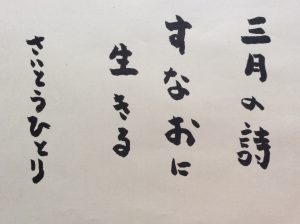 三月の詩
すなおに
生きる
さいとうひとり